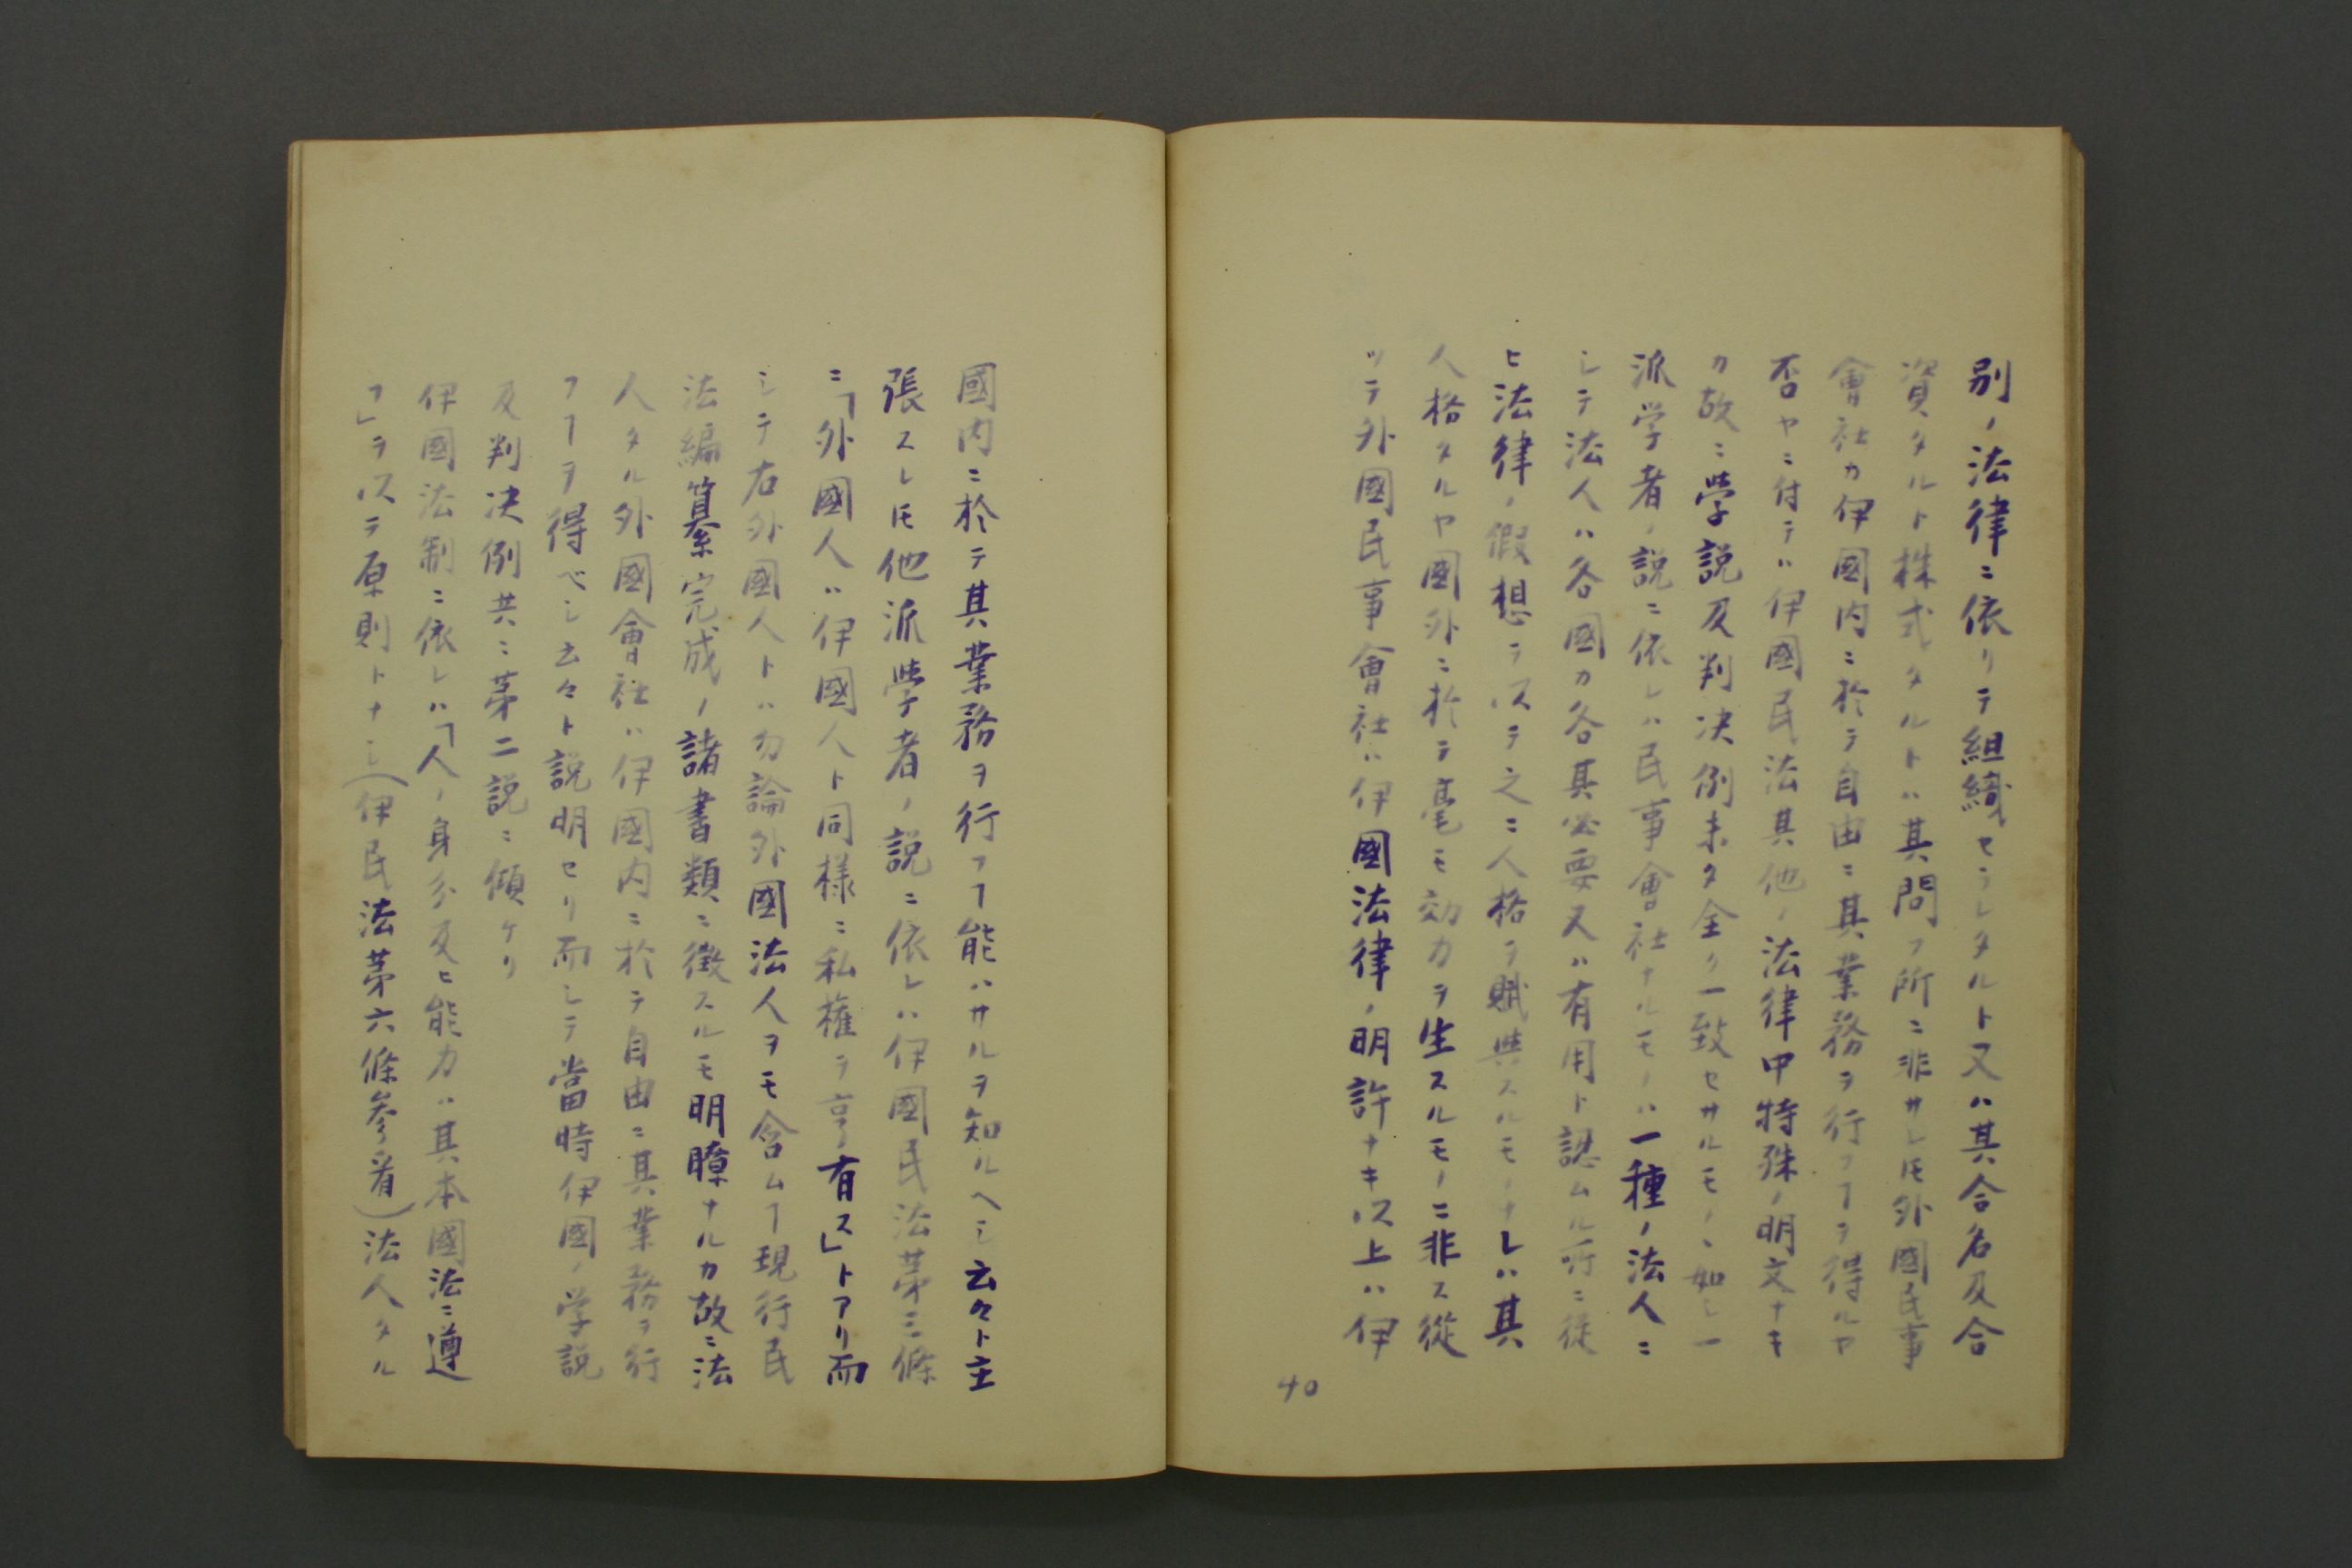 別ノ法律ニ依リテ組織セラレタルト又ハ其合名及合
資タルト株式タルトハ其問フ所ニ非サレ𪜈外國民事
會社カ伊國内ニ於テ自由ニ其業務ヲ行フヿヲ得ルヤ
否ヤニ付テハ伊國民法其他ノ法律中特殊ノ明文ナキ
カ故ニ學説及判决例未タ全ク一致セサルモノヽ如シ一
派学者ノ説ニ依レハ民事會社ナルモノハ一種ノ法人ニ
シテ法人ハ各國カ各其必要又ハ有用ト認ムル所ニ従
ヒ法律ノ假想ヲ以テ之ニ人格ヲ賦與スルモノナレハ其
人格タルヤ國外ニ於テ毫モ効力ヲ生スルモノニ非ス從
ツテ外國民事會社ハ伊國法律ノ明許ナキ以上ハ伊
40
國内ニ於テ其業務ヲ行フヿ能ハサルヲ知ルヘシ云々ト主
張スレ𪜈他派學者ノ説ニ依レハ伊國民法苐三條
ニ「外國人ハ伊國人ト同様ニ私権ヲ享有ス」トアリ而
シテ右外國人トハ勿論外國法人ヲモ含ムヿ現行民
法編纂完成ノ諸書類ニ徴スルモ明瞭ナルカ故ニ法
人タル外國會社ハ伊國内ニ於テ自由ニ其業務ヲ行
フヿヲ得ベシ云々ト説明セリ而シテ當時伊國ノ学説
及判决例共ニ苐二説ニ傾ケリ
伊國法制ニ依レハ「人ノ身分及ヒ能力ハ其本國法ニ遵
フ」ヲ以テ原則トナシ(伊民法苐六條参看)法人タル